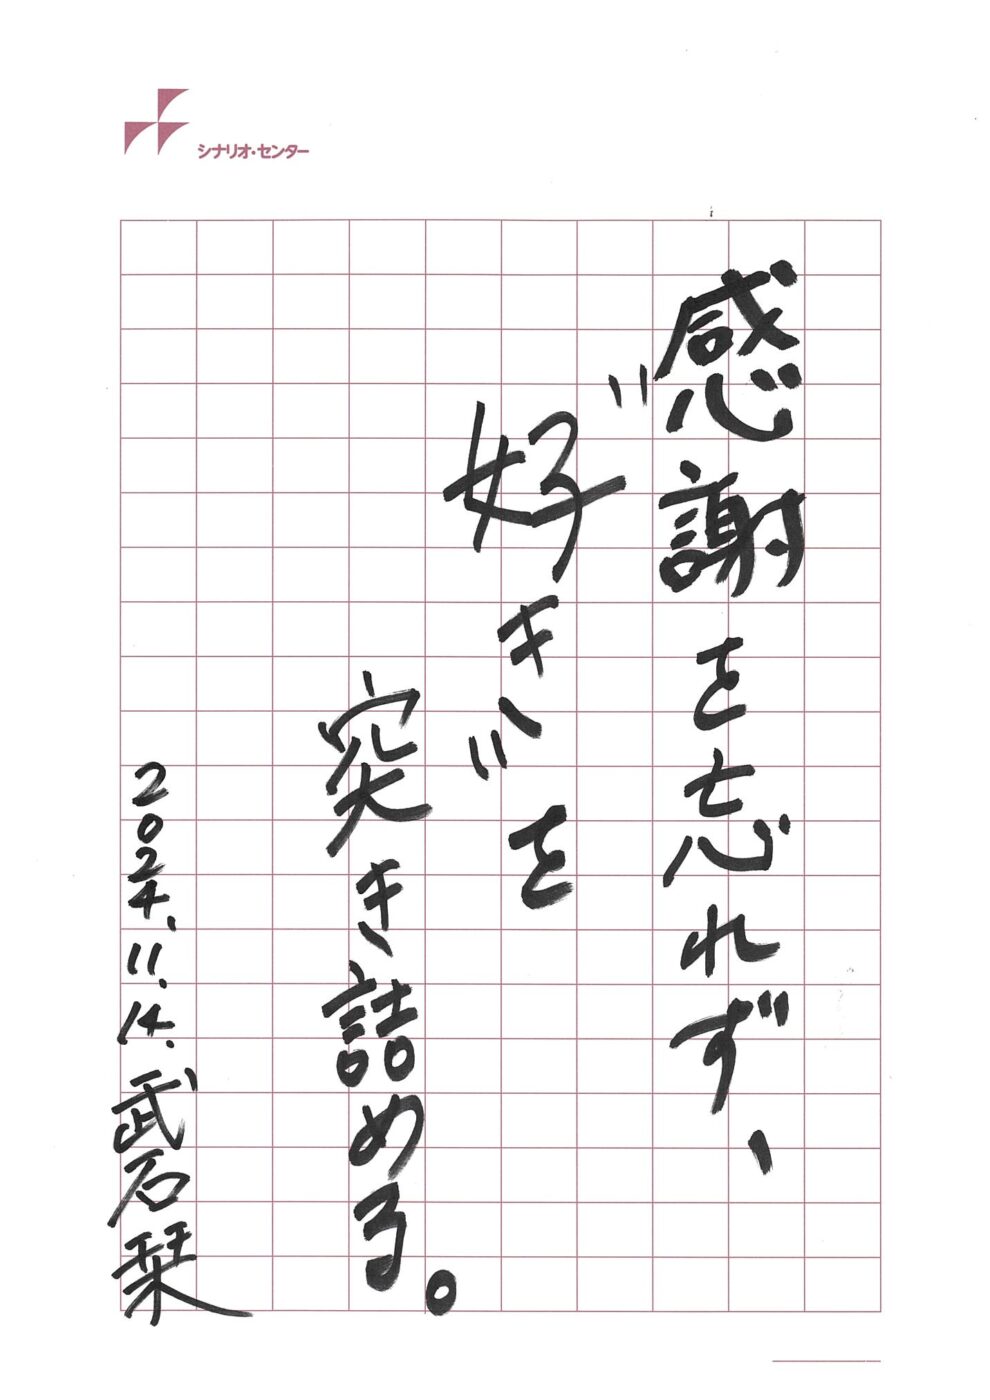 シナリオ・センター
感謝を忘れず、
"好き"を
突き詰める。
2024.11.14.武石栞